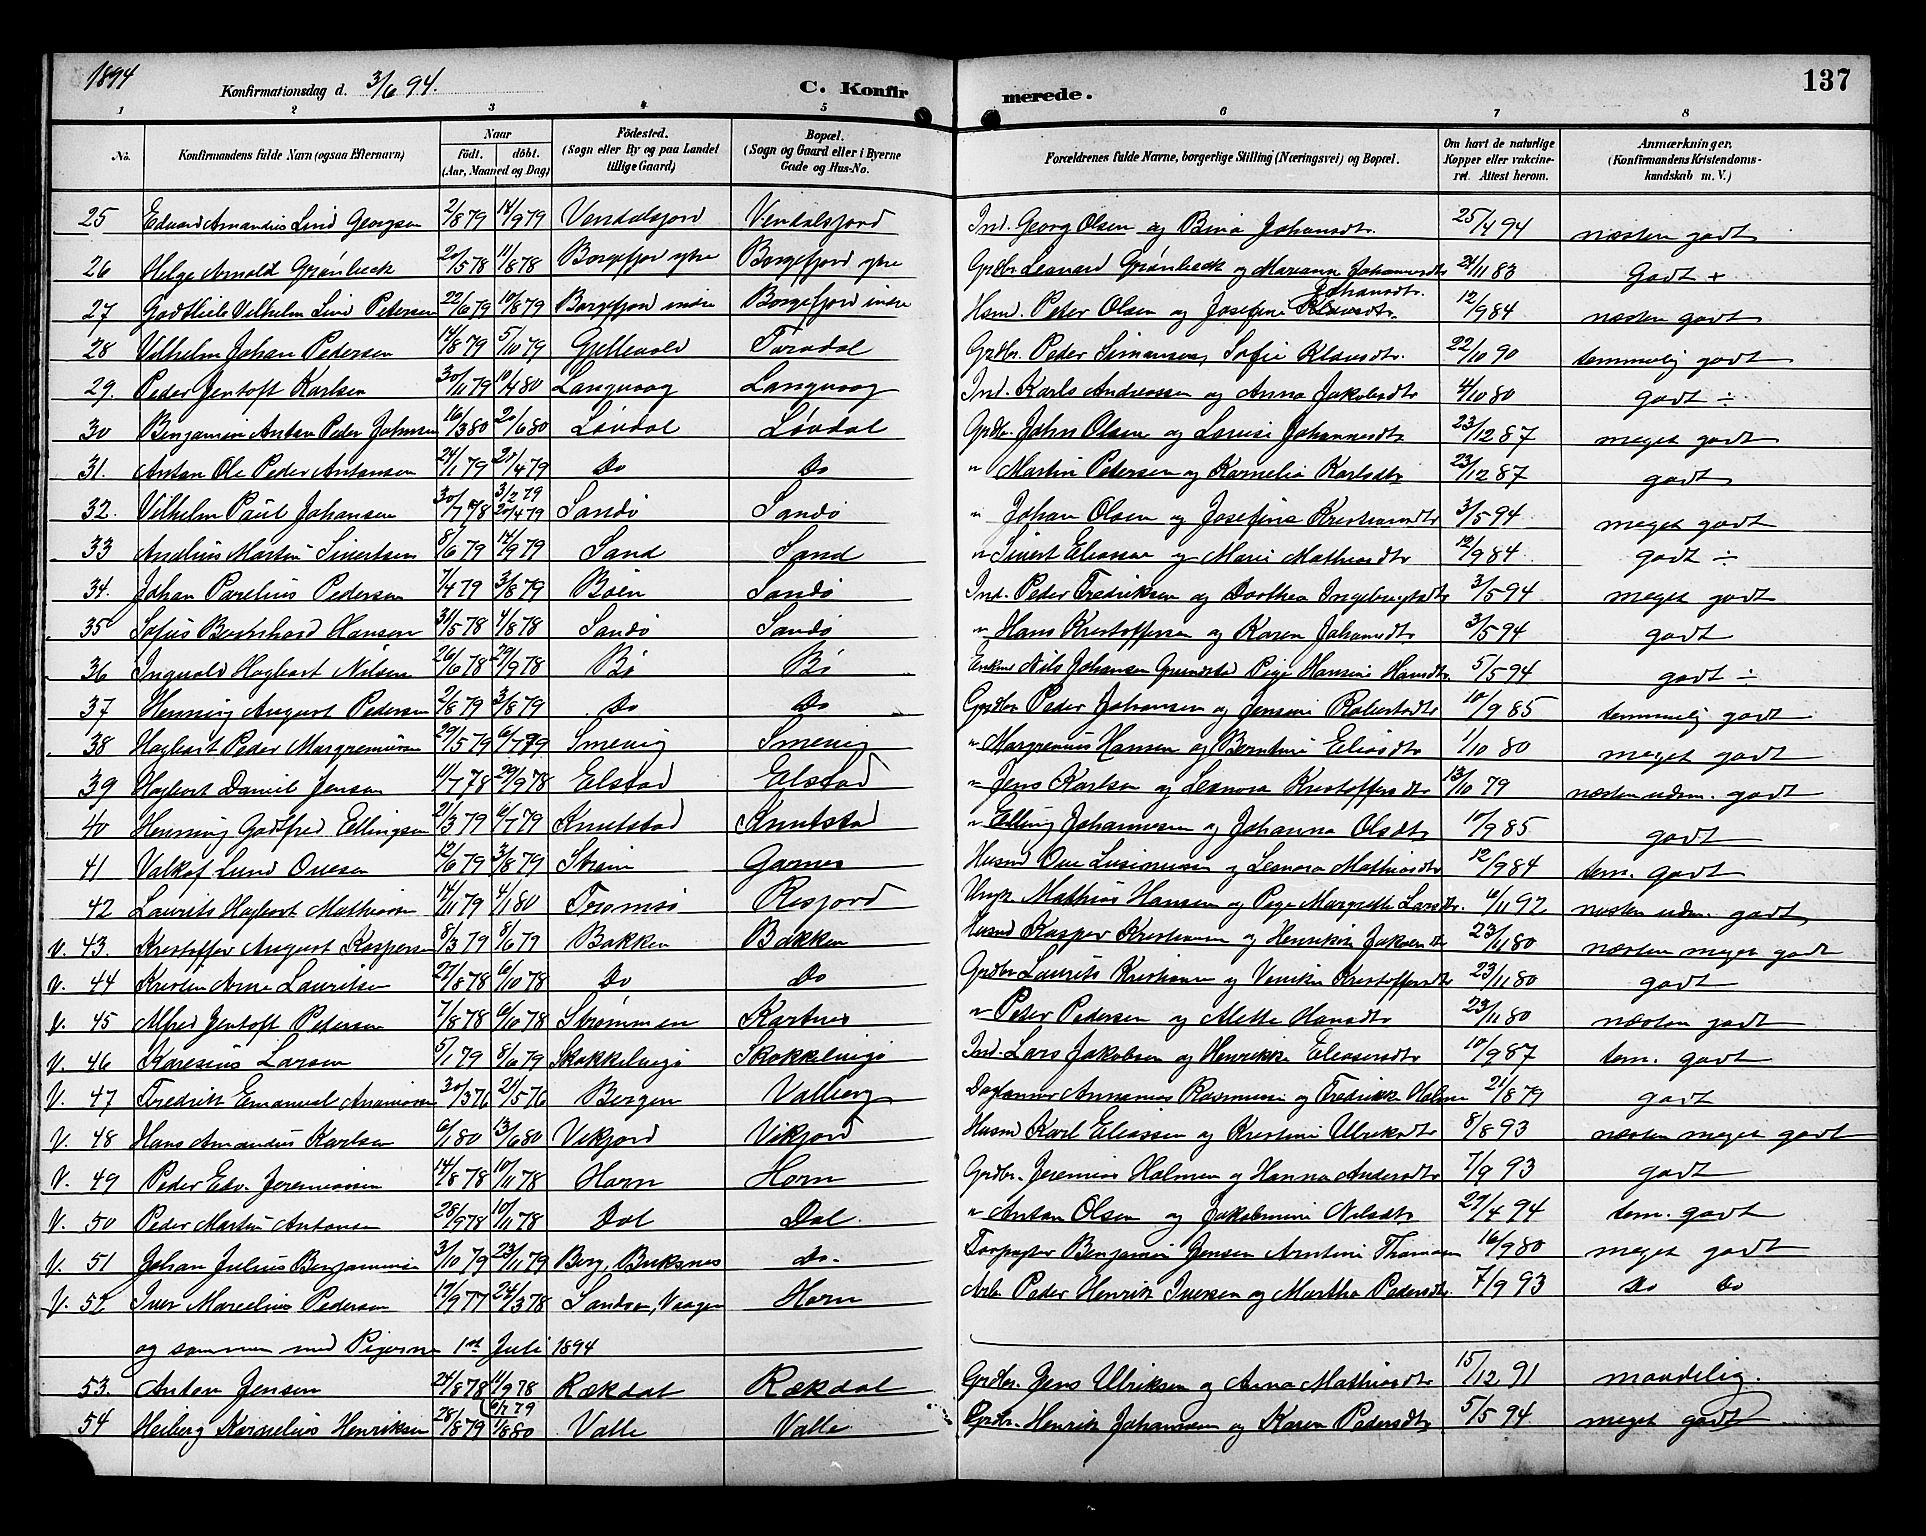 1894
Konfirmationsdag d. 3/6 94.
C. Konfirmerede.
137
1 2 3 4 5 6 7 8
No.
Konfirmandens fulde Navn (ogsaa Efternavn)
Naar
födt. döbt.
(Aar, Maaned og Dag)
Födested.
(Sogn eller By og paa Landet tillige Gaard)
Bopæl.
(Sogn og Gaard eller i Byerne Gade og Hus-No.
Forældrenes fulde Navne, borgerlige Stilling (Næringsvei) og Bopæl.
Om havt de naturlige Kopper eller vakcineret. Attest herom.
Anmærkninger,
(Konfirmandens Kristendomskundskab m. V.)
25 Edvard Amandus Lind Georgsen 2/8 79 14/9 79 Vendalsfjord Vendalsfjord Ind. Georg Olsen og Bina Johansdtr. 25/4 94 næsten godt
26 Helge Arnold Grønbeck 20/5 78 11/8 78 Borgefjor ytre Borgefjord ytre Grdbr. Leonard Grønbeck og Mariann Johannesdtr 21/11 83 Godt +
27 Godtlieb Vilhelm Lind Petersen 22/6 79 10/8 79 Borgefjord indre Borgefjord indre Hsmd. Peter Olsen og Josefine Johansdtr. 12/9 84 næsten godt
28 Vilhelm Johan Pedersen 14/8 79 5/10 79 Gjellevold Torvdal Grdbr. Peder Simonsen, Sofie Klausdtr. 22/10 90 temmelig godt
29. Peder Jentoft Karlsen 30/11 79 10/4 80 Langvaag Langvaag Ind. Karls Andreassen og Anna Jakobsdtr 4/10 80 godt ÷
30 Benjamin Anton Peder Johnsen 16/3 80 20/6 80 Løvdal Løvdal Grdbr. John Olsen og Lovise Johannesdtr 23/12 87 meget godt
31. Anton Ole Peder Antonsen 24/1 79 20/4 79 Do Do " Martin Petersen og Kornelia Karlsdtr 23/12 87 godt
32. Vilhelm Paul Johansen 30/7 78 3/2 79 20/4 79 Sandö Sandö " Johan Olsen og Josefine Kristiansdtr 3/5 94 meget godt
33 Anelius Martin Sivertsen 8/6 79 14/9 79 Sand Sand " Sivert Eliassen og Marie Mathiasdtr 12/9 84 godt ÷
34. Johan Parelius Pedersen 7/4 79 3/8 79 Böen Sandö Ind. Peder Fredriksen og Dorthea Ingebrigtsdtr 3/5 94 meget godt
35 Sofus Bernhard Hansen 31/5 78 4/8 78 Sandö Sandö " Hans Kristoffersen og Karen Johansdtr 3/5 94 godt
36 Ingvald Hagbart Nilsen 26/6 78 29/9 78 Bö Bö Enkm Nils Johansen Grundstad Pige Hansine Hansdtr. 5/5 94 godt ÷
37 Henning August Pedersen 2/8 79 3/8 79 Do Do Grdbr Peder Johansen og Jensine Robertsdtr 10/9 85 temmelig godt
38 Hagbart Peder Margreniusen 29/5 79 6/7 79 Smevig Smevig " Margrenius Hansen og Berntine Eliasdtr 1/10 80 meget godt
39 Hagbart Daniel Jensen 11/7 78 29/9 78 Elstad Elstad " Jens Karlsen og Leonora Kristoffersdtr 13/10 79 næsten udm. godt
40 Henning Godtfred Ellingsen 21/3 79 6/7 79 Knutstad Knutstad " Elling Johannesen og Johanna Olsdtr 10/9 85 godt
41 Valkof Lund Ovesen 12/6 79 3/8 79 Garnes Husmd Ove Leanora Mathiasdtr 12/9 84 tem. godt
42 Laurits Hagbart Mathiassen 14/11 79 4/1 80 Tromsö Resjord Mathias Hansen og Pige Margrethe Larsdtr. 6/11 92 næsten udm. godt,
V. 43. Kristoffer August Kaspersen 8/3 79 8/6 79 Bakken Bakken Husmd Kasper Kristiansen og Henrikke Jakobsdtr 23/11 80 næsten meget godt
V. 44 Kristen Arne Lauritsen 27/8 78 6/10 78 Do Do Grdbr Laurits Kristiansen og Kristoffersdtr 23/11 80 godt
V. 45 Alfred Jentoft Petersen 7/8 78 6/6 78 Strømmen Kartnes " Peter Pedersen og Mette Hansdtr 23/11 80 næsten godt
V. 46 Karesius Larsen 5/1 79 8/6 79 Skokkelvigö Skokkelvigö Ind. Lars Jakobsen og Henrikke Eliasersdtr 10/9 87 tem. godt
V. 47 Fredrik Emanuel 30/3 76 21/5 76 Bergen Valberg Rasmussen og Fredrikke Holmen 21/8 79 godt
V. 48 Hans Amandus Karlsen 6/1 80 13/6 80 Vikjord Vikjord Husmd Karl Eliassen og Kristine Ulriksdtr 8/8 93 næsten meget godt
V. 49 Peder Edv. Jeremiassen 14/8 78 10/11 78 Horn Horn Grdbr. Jeremias Holmen og Hanna Andersdtr 7/9 93 godt
V. 50 Peder Martin Antonsen 28/9 78 10/11 78 Dal Dal. " Anton Olsen og Jakobmine Nilsdtr 27/4 94 tem. godt
V. 51 Johan Julius Benjaminsen 3/10 79 23/11 79 Berg, Buksnes Do. Benjamin Jensen Arntine Thomasen 16/9 80 meget godt
V. 52 Iver Marcelius Pedersen 19/9 77 24/3 78 Sandøen, Vaagen Horn Arb. Peder Henrik Iversen og Martha Pedersdtr 7/9 93 Do Do
og sammen med Pigerne 1ste Juli 1894
53. Anton Jensen 24/8 78 11/9 78 Rækdal Rækdal Grdbr. Jens Ulriksen og Anna Mathiasdtr 15/12 91 maadelig.
54 Heiberg Kornelius Henriksen 28/8 79 6/7 79 1/8 80 Valle Valle Grdbr. Henrik Johansen og Karen Pedersdtr 5/5 94 meget godt